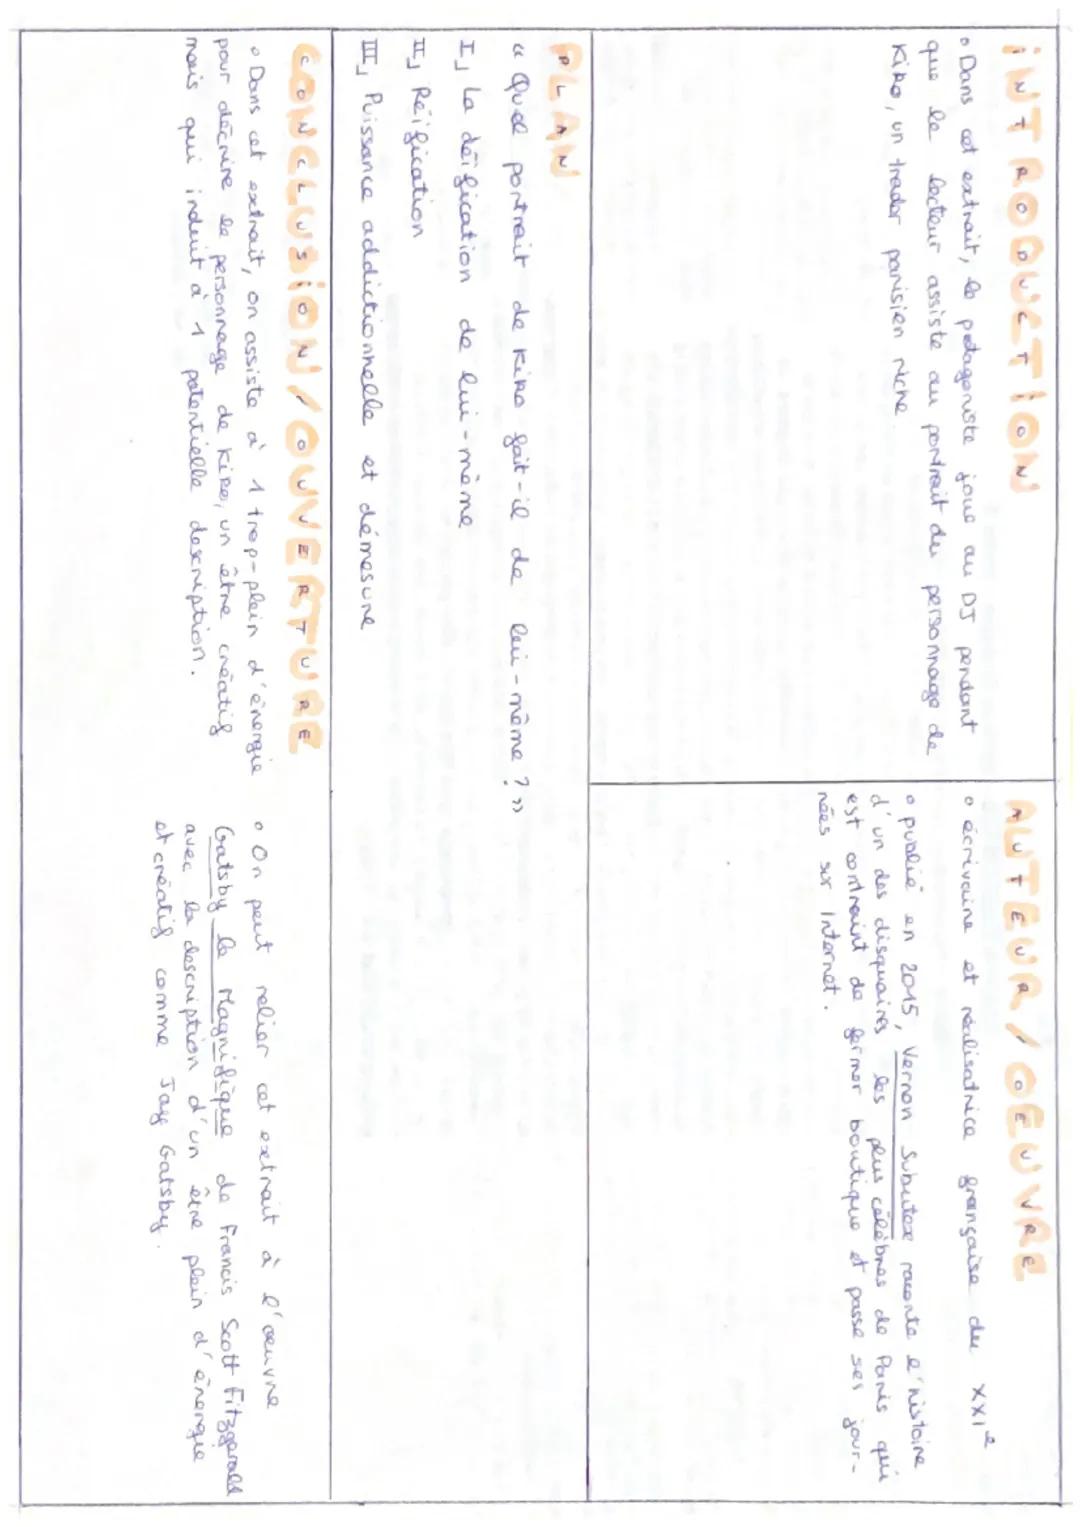 INTRODUCTION
° Dans cet extrait, le protagoniste joue au DJ pendant
que le lecteur assiste au portrait du personnage de
Kiko, un trader parisien riche.
AUTEUR / OEUVRE
° écrivaine et réalisatrice française du XXIe
° publié en 2015, Vernon Subutex raconte l'histoire
d'un des disquaires les plus célèbres de Paris qui
est contraint de fermer boutique et passe ses jour-
nées sur Internet.
PLAN
« Quel portrait de Kiko fait-il de lui-même ? »
I, La déification de lui-même
II, Réification
III, Puissance addictionnelle et démesure
CONCLUSION / OUVERTURE
° Dans cet extrait, on assiste à 1 trop-plein d'énergie
pour décrire le personnage de Kiko, un être créatif
mais qui induit à 1 potentielle description.
° On peut relier cet extrait à l'œuvre
Gatsby le Magnifique de Francis Scott Fitzgerald
avec la description d'un être plein d'énergie
et créatif comme Jay Gatsby.